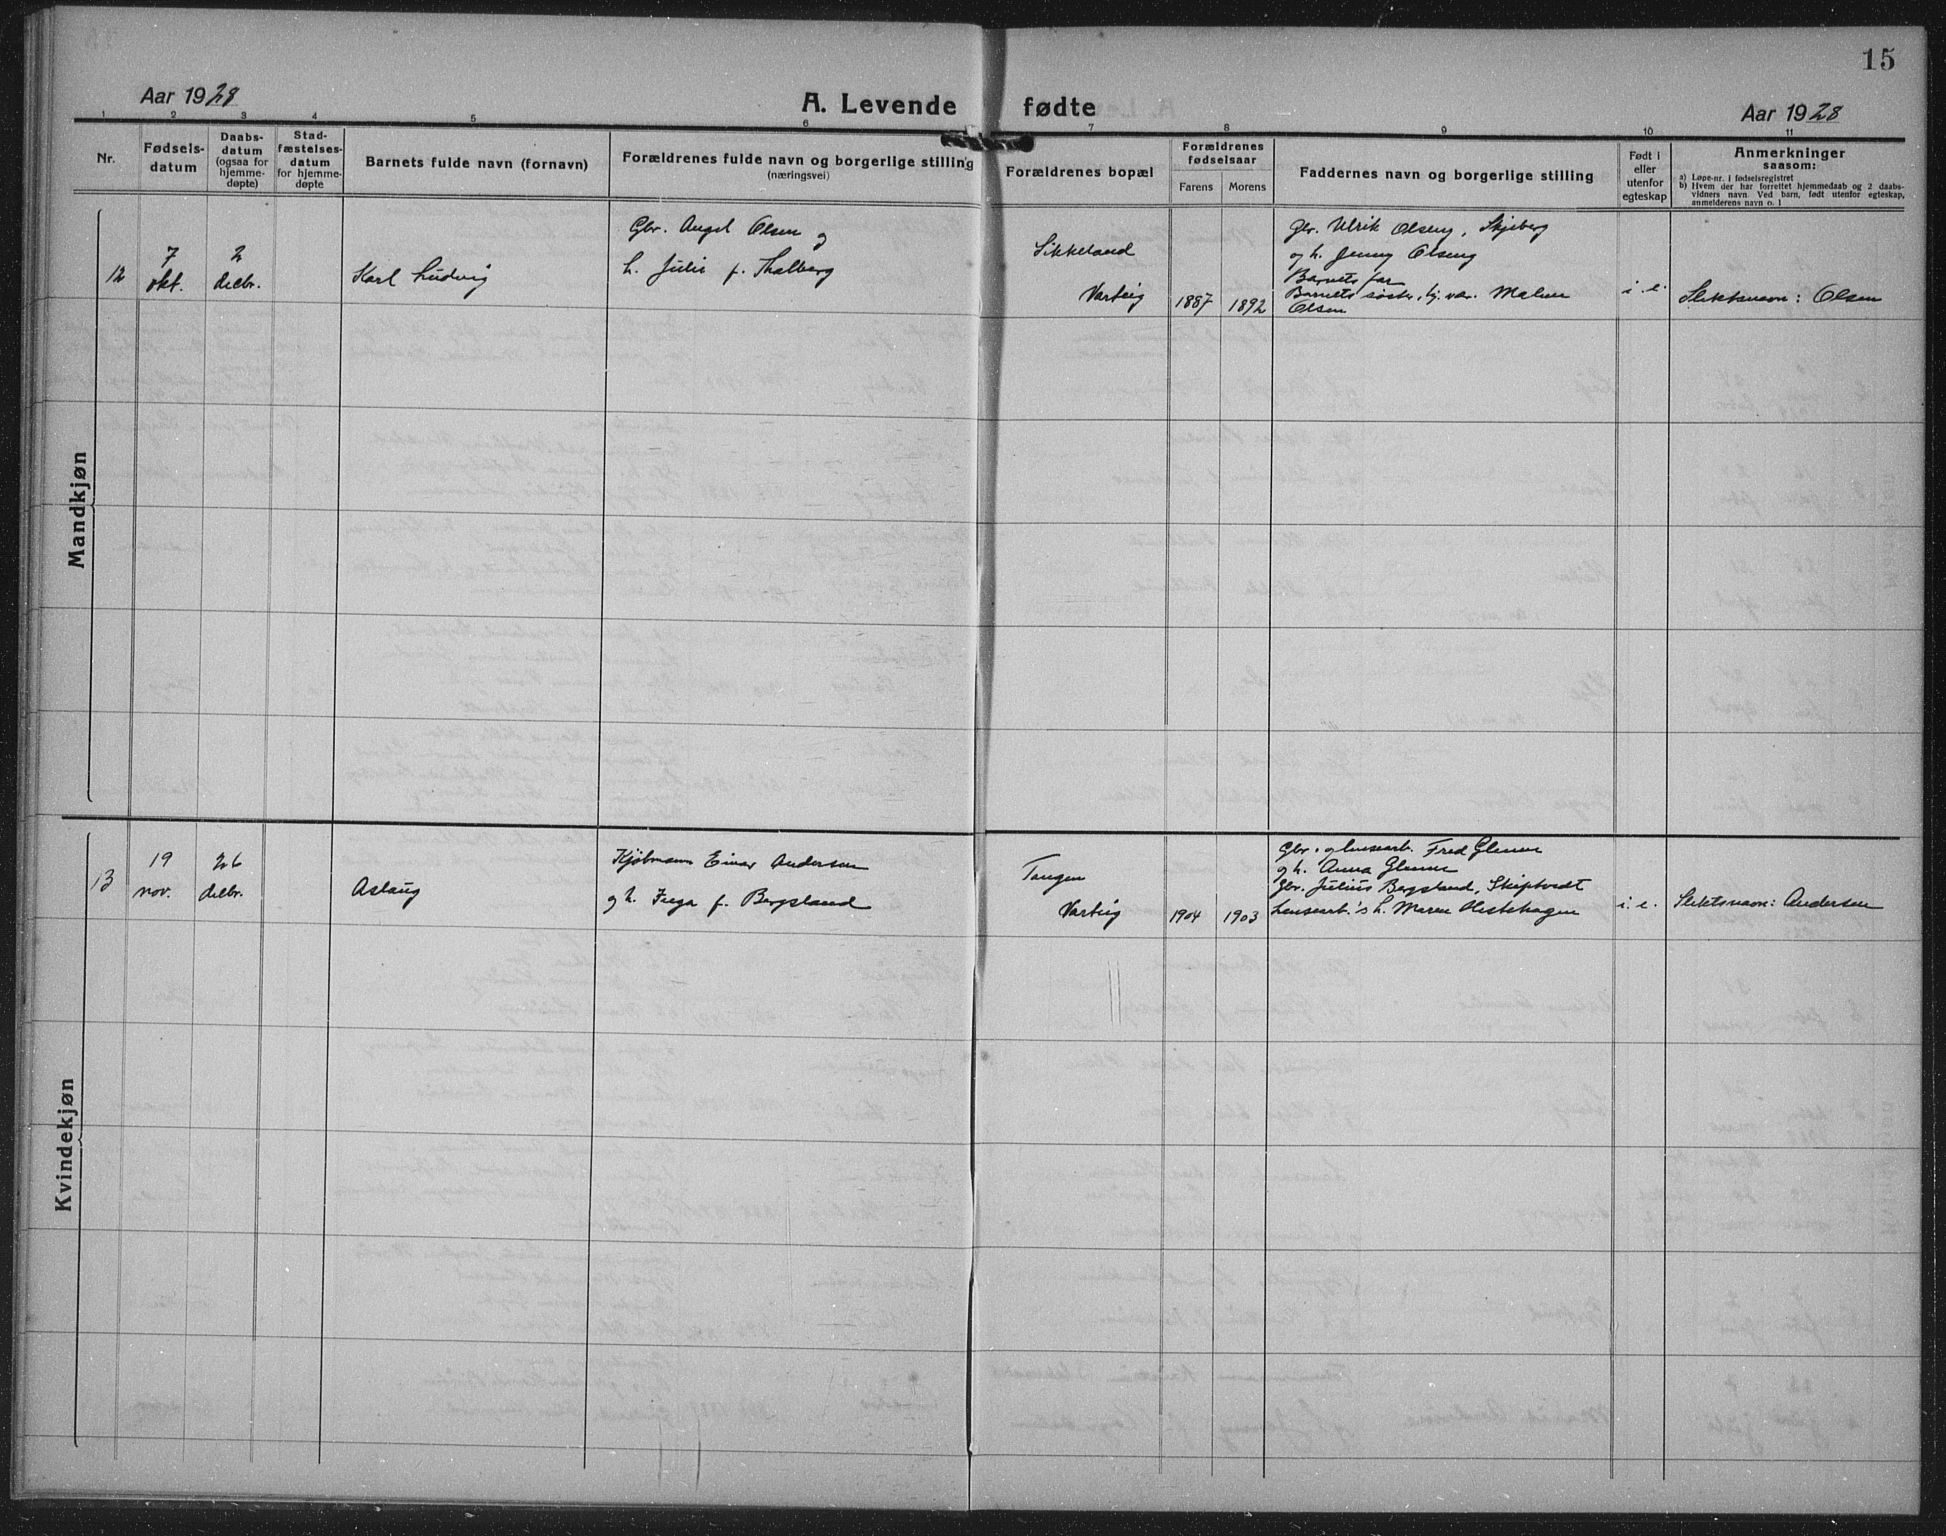 15
Aar 1928
A. Levende fødte
Aar 1928
1 2 3 4 5 6 7 8 9 10 11
Nr.
Fødsels-
datum
Daabs-
datum
(ogsaa for
hjemme-
døpte)
Stad-
fæstelses-
datum
for hjemme-
døpte
Barnets fulde navn (fornavn)
Forældrenes fulde navn og borgerlige stilling
(næringsvei)
Forældrenes bopæl
Forældrenes
fødselsaar
Farens Morens
Faddernes navn og borgerlige stilling
Født i
eller
utenfor
egteskap
Anmerkninger
saasom:
a) Løpe-nr. i fødselsregistret
b) Hvem der har forrettet hjemmedaab og 2 daabs-
vidners navn. Ved barn, født utenfor egteskap,
anmelderens navn o. l
Mandkjøn
12
7
okt.
2
decbr.
Karl Ludvig
Gbr. Olsen og
h. Julie f. Thalberg
Sikkeland
Varteig
1887 1892
Gbr. Ulrik Olseng, Skjeberg
og h. Jenny Olseng
Barnets far
Barnets søster, hj.vær. Malene
Olsen
i. e.
Slektsnavn: Olsen
Kvindekjøn
13
19
nov.
26
decbr.
Aslaug
Kjøbmann Einar Andersen
og h. Inga f. Bergsland
Tangen
Varteig
1904 1903
Gbr. og lensearb. Fred Glenne
og h. Anna Glenne
Gbr. Julius Bergsland, Skiptvedt
Lensearb.'s h. Maren
i. e.
Slektsnavn: Andersen